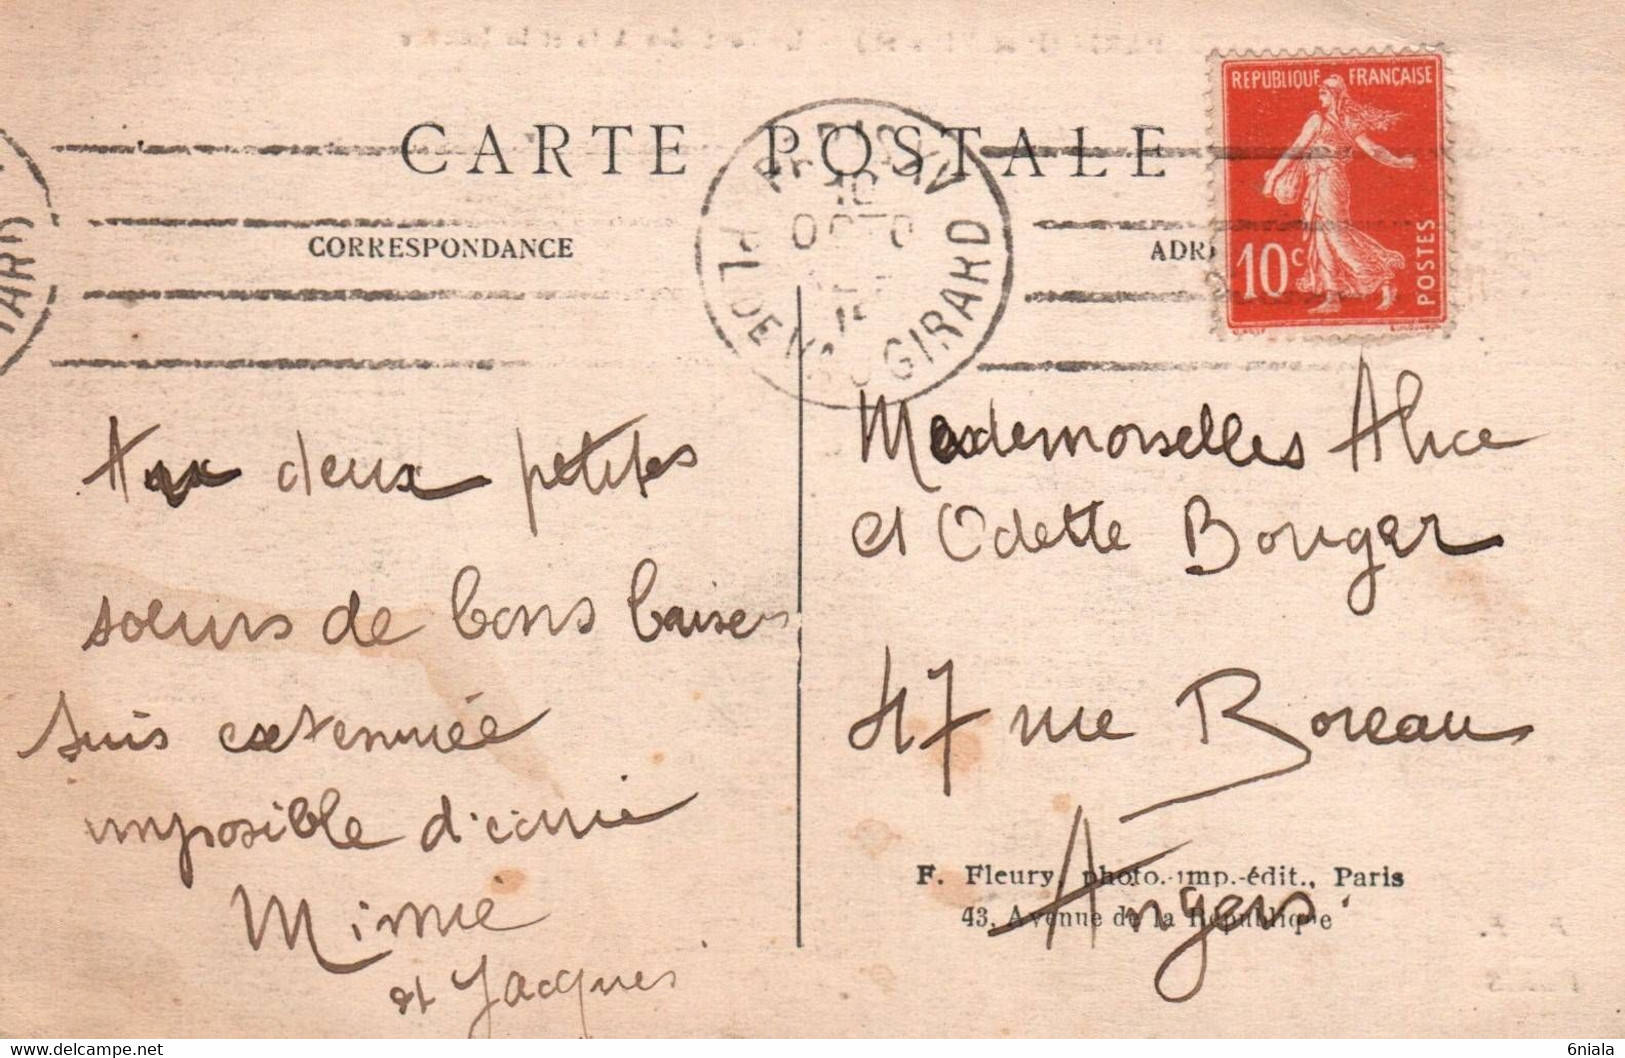 CARTE POSTALE
CORRESPONDANCE
ADR
REPUBLIQUE FRANÇAISE
10c
POSTES
PARIS XV
10
OCTO
PL. DE VAUGIRARD
Aux deux petites
soeurs de bons baisers
suis extennuée
impossible d'écrire
Mimie
et Jacques
Mesdemoiselles Alice
et Odette Bouger
47 rue Boreau
Angers
F. Fleury, photo.-imp.-édit., Paris
43, Avenue de la République
6niala